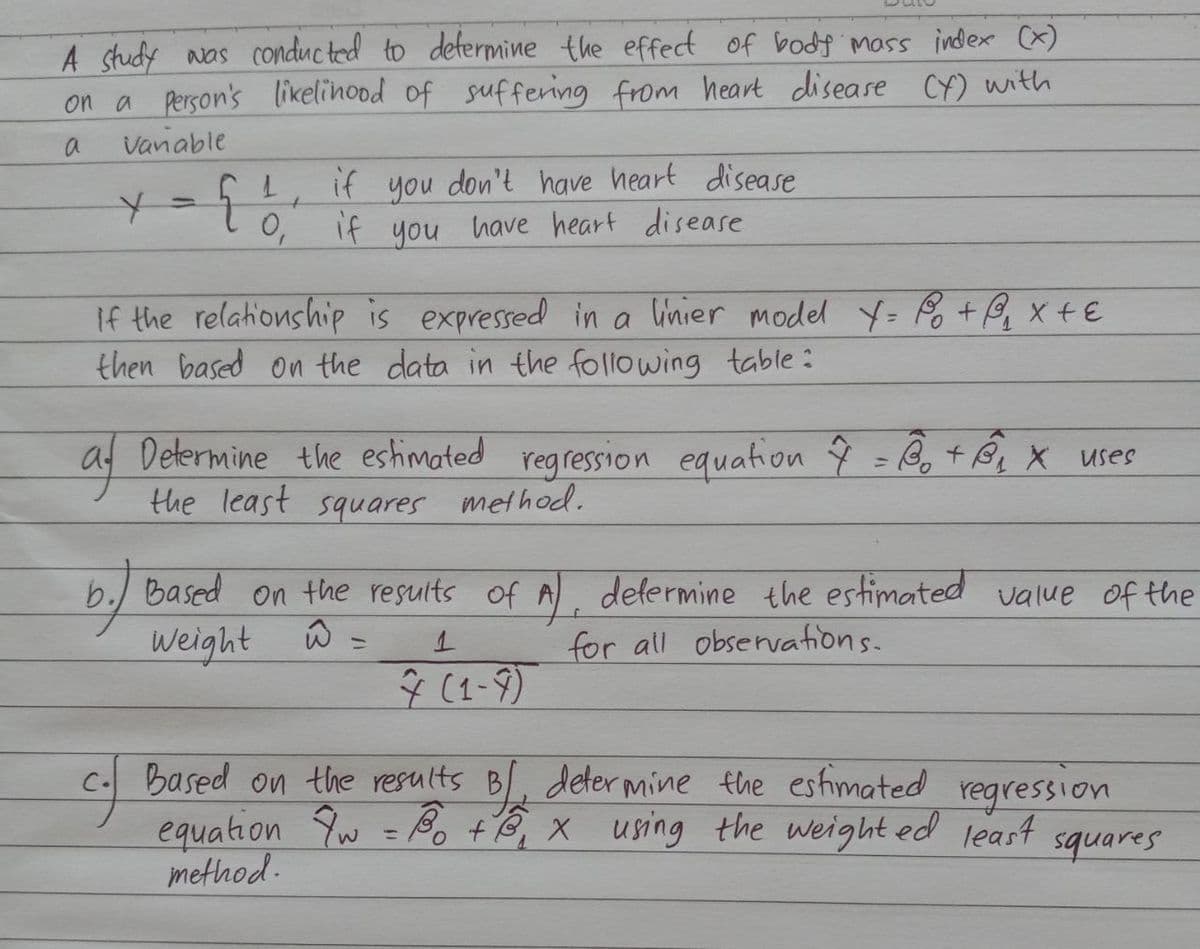 A study was conducted to determine the effect of body mass index (X)
on a person's likelihood of suffering from heart disease (Y) with
a variable
Y = { 1, if you don't have heart disease
0, if you have heart disease
If the relationship is expressed in a linier model Y = β₀ + β₁ X + ε
then based on the data in the following table :
a.) Determine the estimated regression equation Ŷ = β̂₀ + β̂₁ X uses
the least squares method.
b.) Based on the results of A), determine the estimated value of the
weight ŵ = 1 / Ŷ (1-Ŷ) for all observations.
c.) Based on the results B), determine the estimated regression
equation Ŷw = β̂₀ + β̂₁ X using the weighted least squares
method.